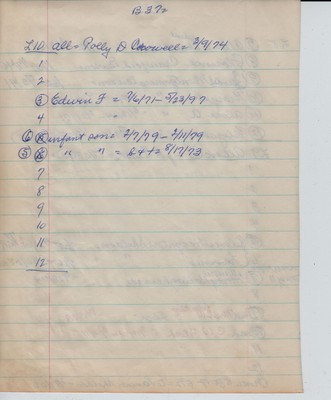 B 372
L10 all = Polly D Crowell = 2/9/74
1
2
③ Edwin F = 7/6/71 - 5/23/97
4 "
⑥ infant son = 2/7/79 - 2/11/79
⑤ " " = b + d = 8/17/73
7
8
9
10
11
12